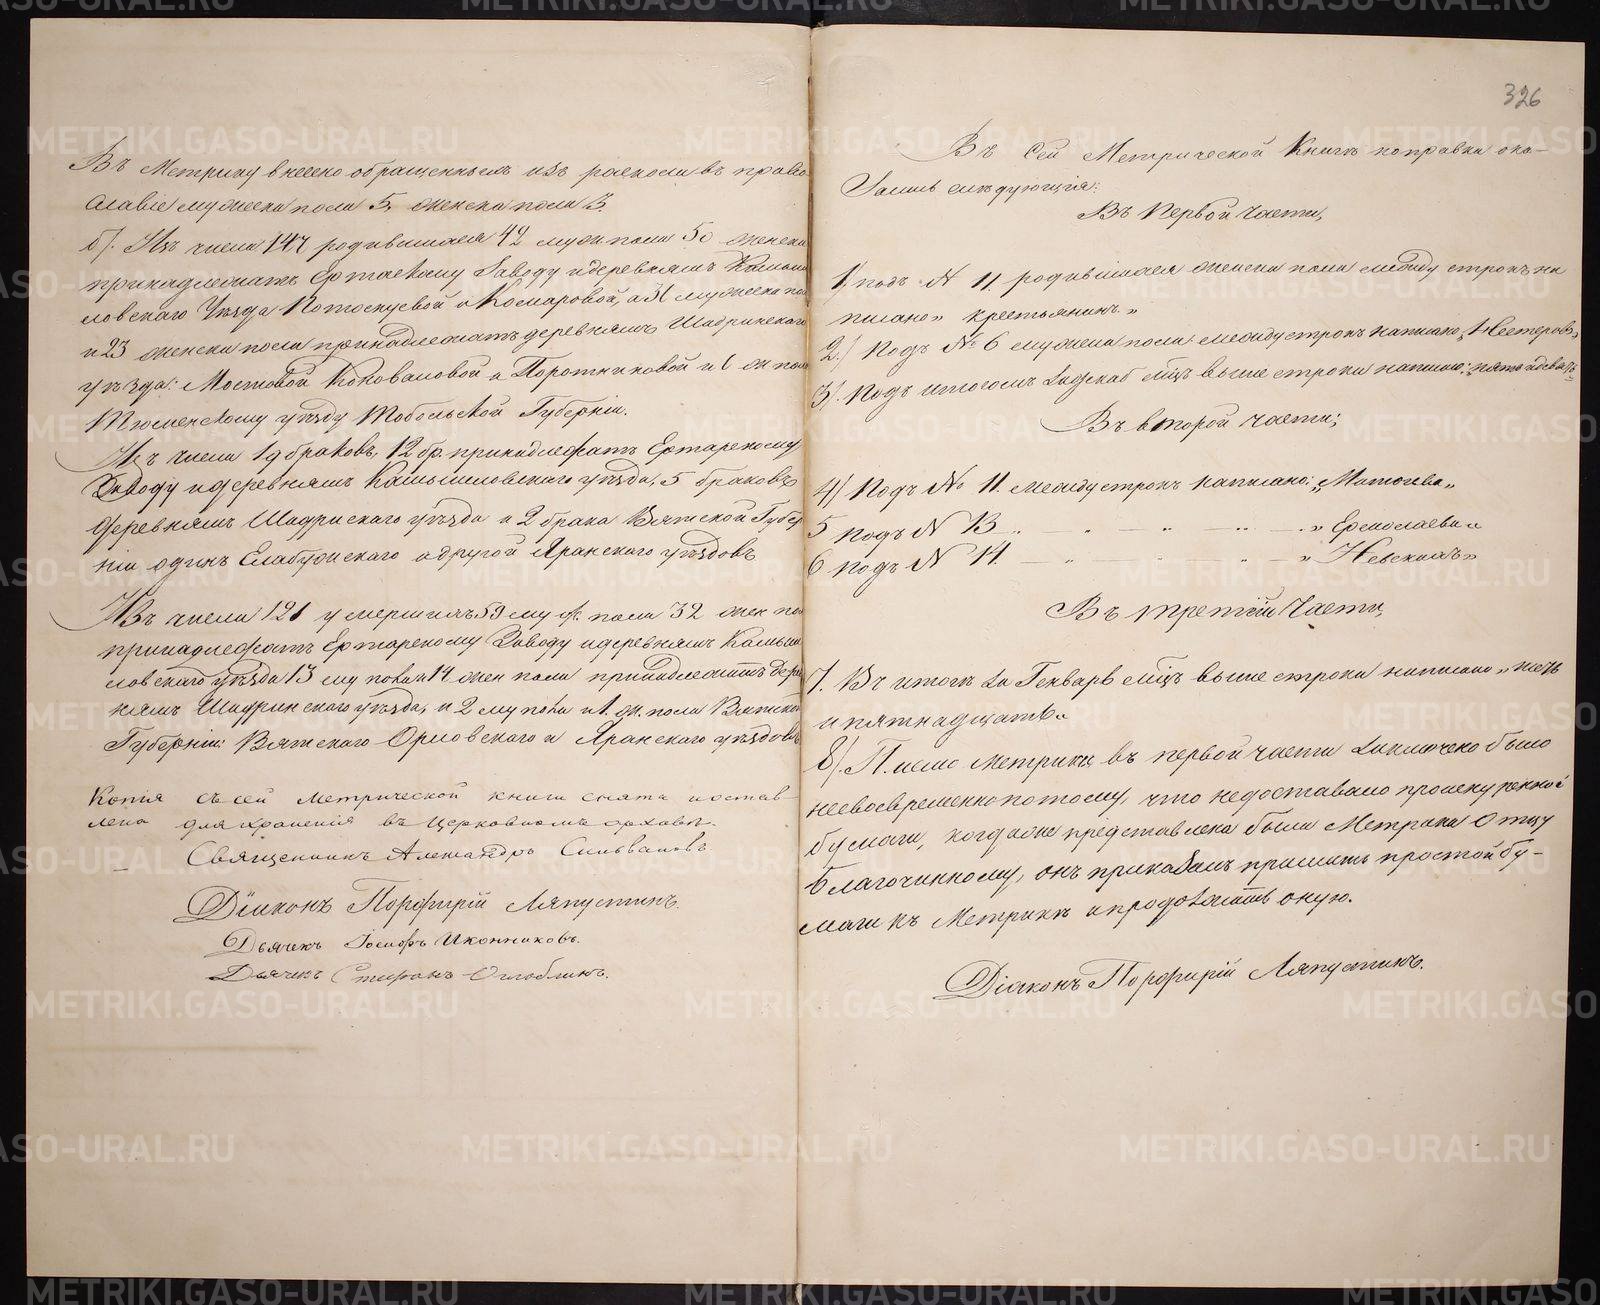 Въ Метрику внесено обращенныхъ изъ раскола въ право
славіе мужеска пола 5, женска пола 3.
б). Изъ числа 147 родившихся 42 муж пола 50 женска
принадлежатъ Ертаскому Заводу и деревнямъ Камыш
ловскаго Уѣзда и Комаровой, а 31 мужеска по
и 23 женска пола принадлежатъ деревнямъ Шадринскаго
уѣзда: Мостовой Коноваловой и Поротниковой и 1 ж пола
Тюменскому уѣзду Тобольской Губерніи.
Изъ числа 19 браковъ, 12 бр. принадлежатъ Ертарскому
Заводу и деревнямъ Камышловскаго уѣзда, 5 браковъ
деревнямъ Шадринскаго уѣзда и 2 брака Вятской Губер
ніи одинъ Елабужскаго а другой Яранскаго уѣздовъ
Изъ числа 121 умершихъ 59 муж. пола 32 жен по
принадлежатъ Ертарскому Заводу и деревнямъ Камыш
ловскаго уѣзда 13 му пола и 14 жен пола принадлежатъ дере
внямъ Шадринскаго уѣзда, и 2 му пола и 1. ж. пола Вятской
Губерніи: Вятскаго Орловскаго и Яранскаго уѣздовъ
Копія съ сей Метрической книги снята и остав-
лена для храненія въ Церковномъ архивѣ.
Священникъ Александръ Сильвановъ
Діаконъ Порфирій Ляпустинъ.
Дьячекъ Іосифъ Иконниковъ.
Дьячекъ Стефанъ Оглоблинъ.
326
Въ Сей Метрической Книгѣ поправки ока-
зались слѣдующія:
Въ Первой Части,
1). подъ № 11. родившихся женска пола между строкъ на
писано „крестьянинъ"
2.) Подъ № 6 мужска пола между строкъ написано „Нестеровъ"
3). Подъ итогомъ за мцъ выше строки написано:
Въ второй части;
4) Подъ № 11. между строкъ написано: „Матвѣева"
5 подъ № 13 .. — „ — „ — „ Ермолаева"
6 подъ № 14. — „ — „ — „ Невскихъ"
Въ третей Части,
7. Въ итогѣ за Генварь мцъ выше строки написано
и пятнадцать"
8). Письмо Метрики въ первой части заключено было
несвоевременно потому, что недоставало прошнуренной
бумаги, когда же представлена была Метрика Отцу
Благочинному, онъ приказалъ пришить простой бу-
маги къ Метрикѣ и продолжать оную.
Діаконъ Порфирій Ляпустинъ.
METRIKI.GASO-URAL.RU